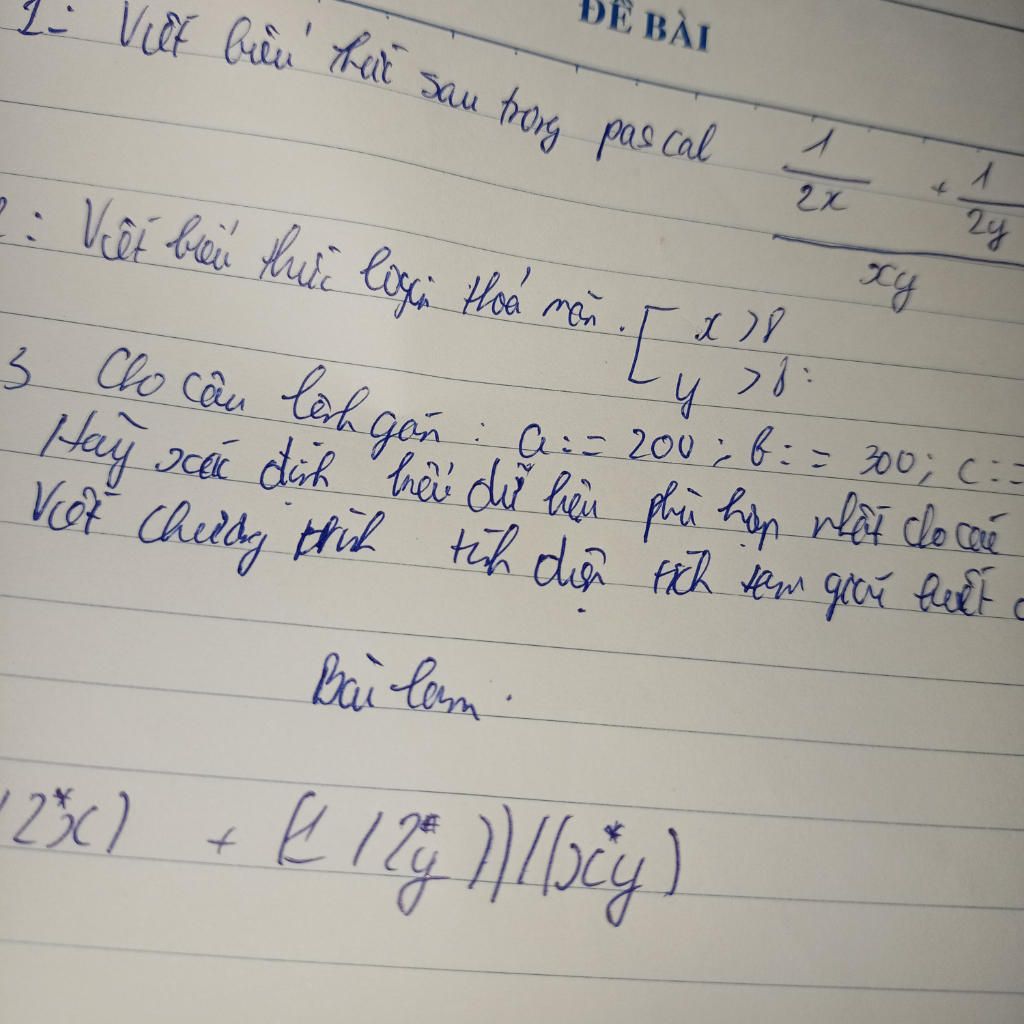 ĐỀ BÀI
1: Viết biểu thức sau trong pascal 1/2x + 1/2y
xy
: Viết biểu thức logic thoả mãn. [ x >8
y >8:
3 Cho câu lệnh gán: a:= 200; b:= 300; c:=
Hãy xác định kiểu dữ liệu phù hợp nhất cho các
Viết chương trình tính diện tích tam giác biết
Bài làm.
(2*x) + (1/(2*y))/(x*y)